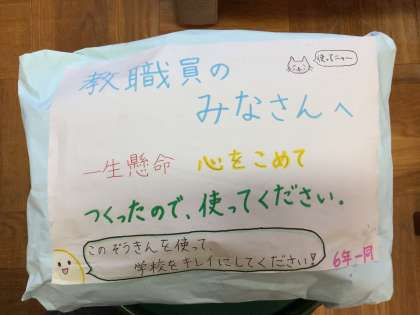 教職員の
みなさんへ
使ってニャ〜
一生懸命 心をこめて
つくったので、使ってください。
このぞうきんを使って、
学校をキレイにしてください!
6年一同